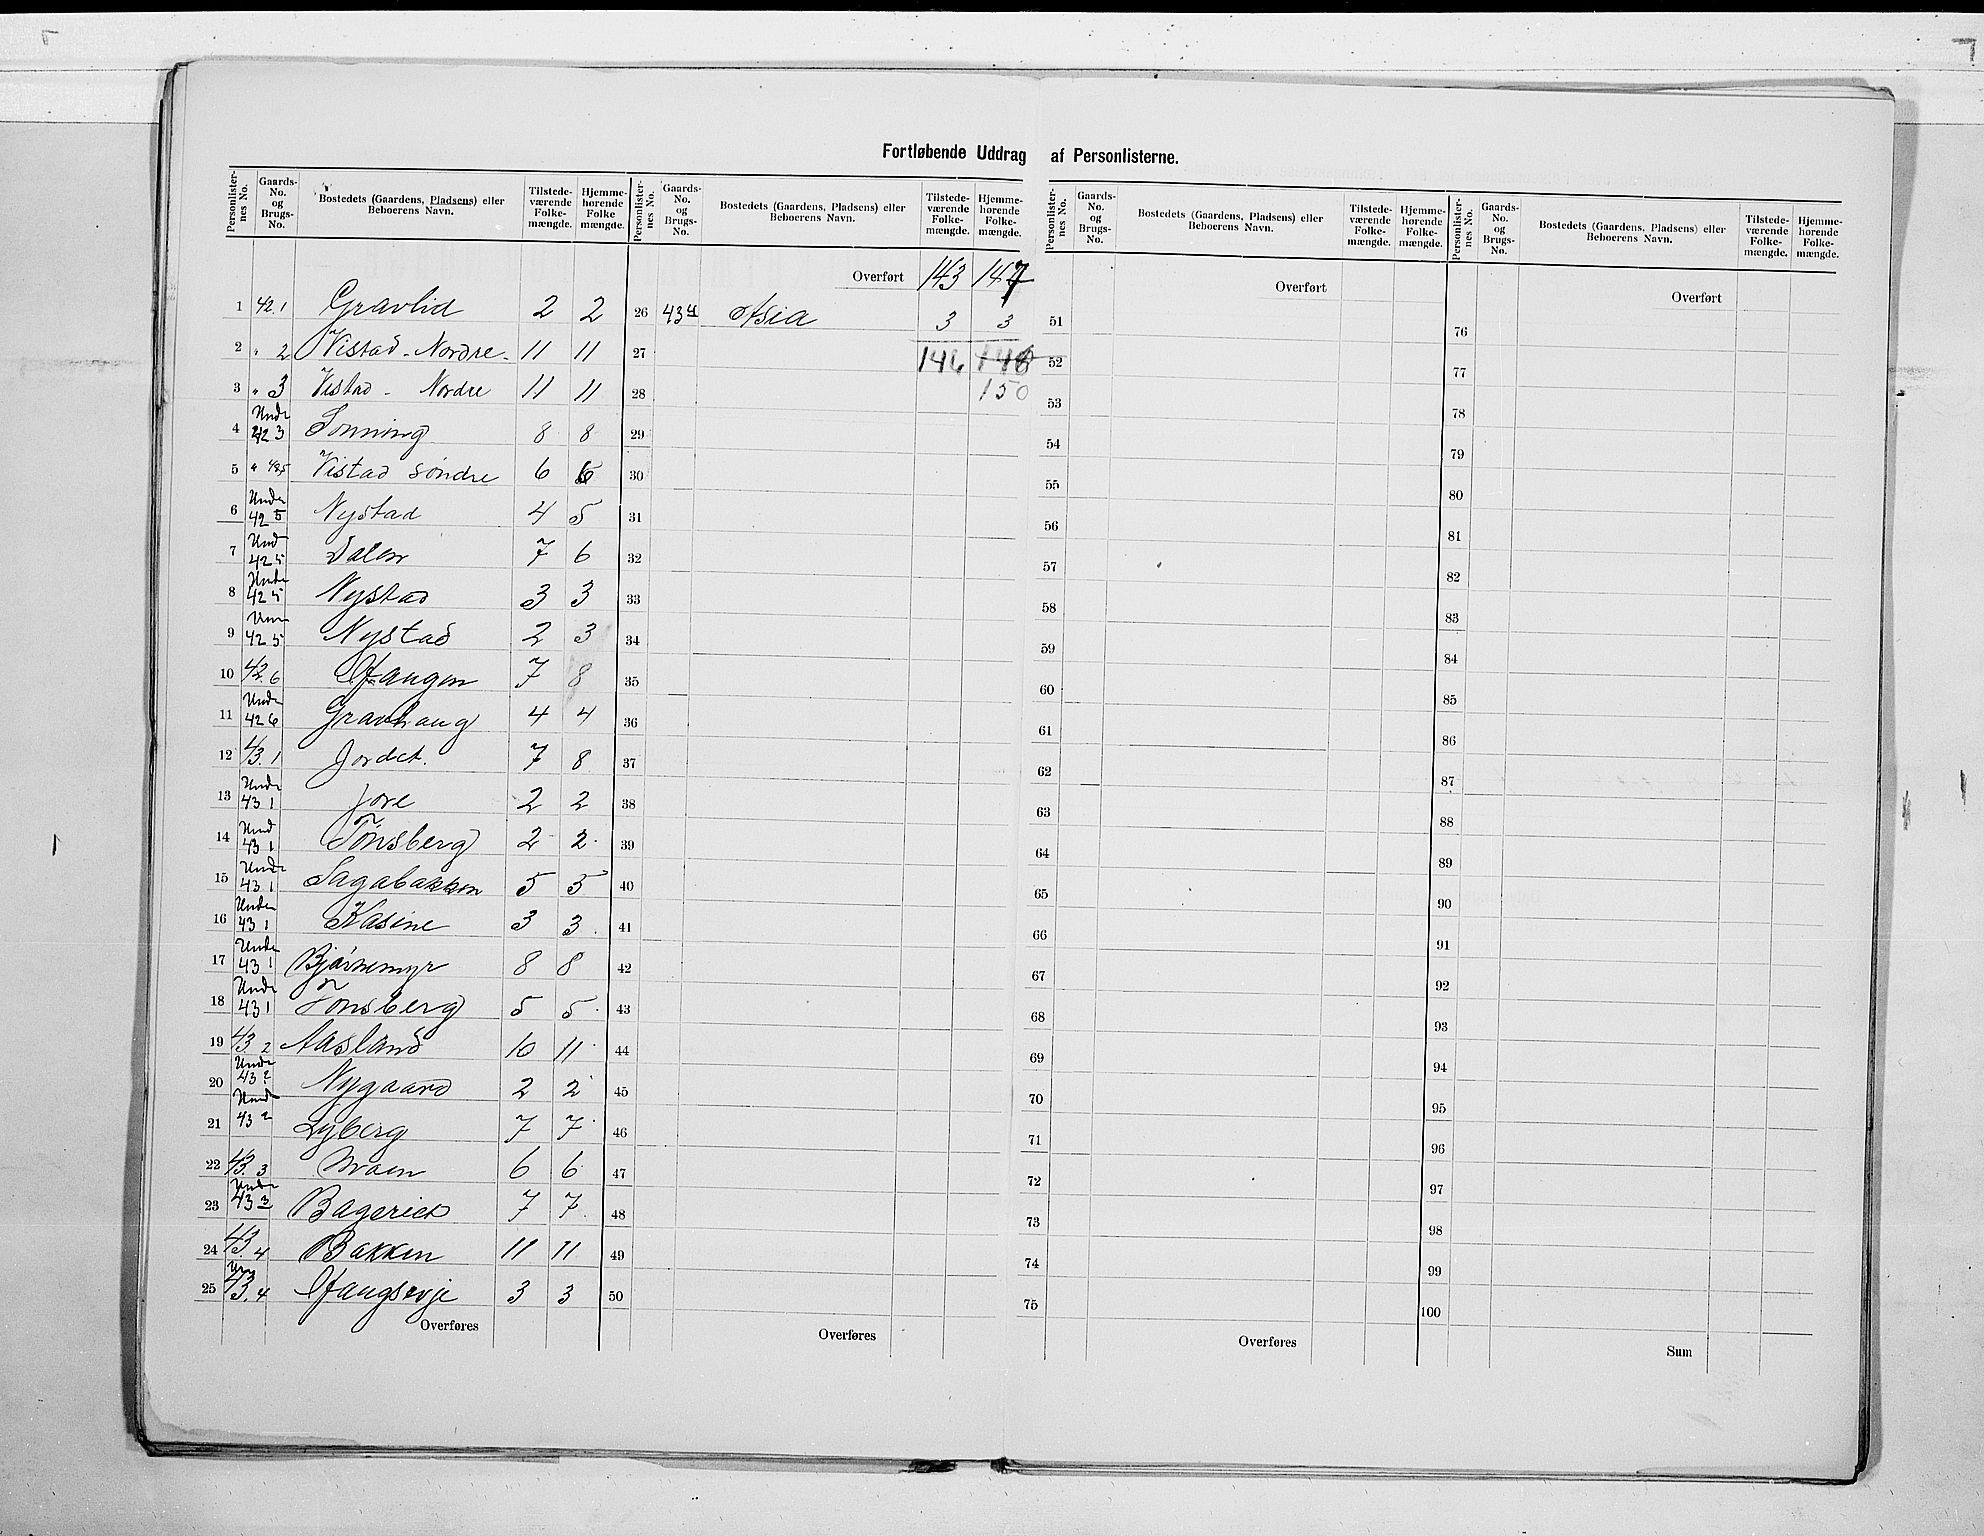 Fortløbende Uddrag af Personlisterne.
Personlisternes No. Gaards-No. og Brugs-No. Bostedets (Gaardens, Pladsens) eller Beboerens Navn. Tilstedeværende Folkemængde. Hjemmehørende Folkemængde.
1 42.1 Gravlid 2 2
2 " 2 Vistad - Nordre - 11 11
3 " 3 Vistad - Nordre 11 11
4 Unde 42 3 Sonning 8 8
5 " 42,5 Vistad søndre 6 6
6 Unde 42 5 Nystad 4 5
7 Und 42 5 Dalen 7 6
8 Unde 42 5 Nystad 3 3
9 42 5 Nystad 2 3
10 42.6 7 8
11 Unde 42 6 Gravhaug 4 4
12 43.1 Jordet. 7 8
13 Unde 43 1 Jore 2 2
14 Und 43 1 Tønsberg 2 2
15 Unde 43 1 Sagabakken 5 5
16 Unde 43 1 Kasine 3 3
17 Unde 43 1 Bjørnemyr 8 8
18 Unde 43 1 Tønsberg 5 5
19 43.2 Aasland 10 11
20 Unde 43 2 Nygaard 2 2
21 Unde 43 2 Lyberg 7 7
22 43.3 Moen 6 6
23 Unde 43 3 Bageriet 7 7
24 43.4 Bakken 11 11
25 43.4 3 3
Overføres
Personlisternes No. Gaards-No. og Brugs-No. Bostedets (Gaardens, Pladsens) eller Beboerens Navn. Tilstedeværende Folkemængde. Hjemmehørende Folkemængde.
Overført 143 147
26 43 4 Asia 3 3
27 146 148
28 150
29
30
31
32
33
34
35
36
37
38
39
40
41
42
43
44
45
46
47
48
49
50
Overføres
Personlisternes No. Gaards-No. og Brugs-No. Bostedets (Gaardens, Pladsens) eller Beboerens Navn. Tilstedeværende Folkemængde. Hjemmehørende Folkemængde.
Overført
51
52
53
54
55
56
57
58
59
60
61
62
63
64
65
66
67
68
69
70
71
72
73
74
75
Overføres
Personlisternes No. Gaards-No. og Brugs-No. Bostedets (Gaardens, Pladsens) eller Beboerens Navn. Tilstedeværende Folkemængde. Hjemmehørende Folkemængde.
Overført
76
77
78
79
80
81
82
83
84
85
86
87
88
89
90
91
92
93
94
95
96
97
98
99
100
Sum